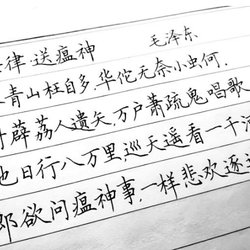 律·送瘟神 毛泽东
青山枉自多,华佗无奈小虫何.
薜荔人遗矢,万户萧疏鬼唱歌
日行八万里,巡天遥看一千河
郎欲问瘟神事,一样悲欢逐